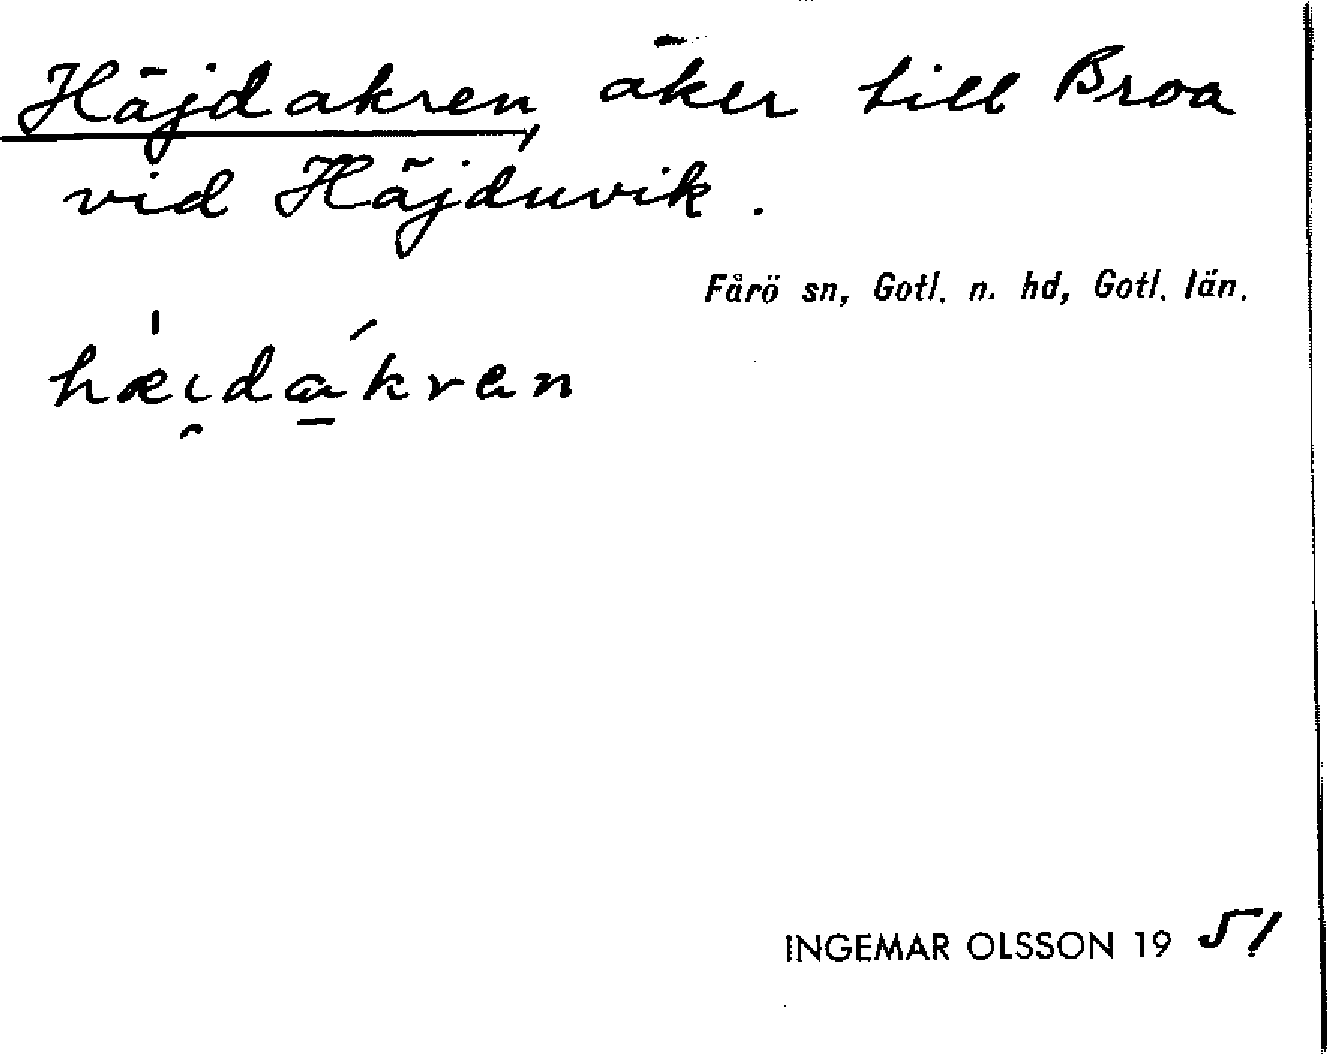 Häjdakren, åker till Broa
vid Häjduvik.
Fårö sn, Gotl. n. hd, Gotl. län.
hæi̯da̠kren
INGEMAR OLSSON 19 51